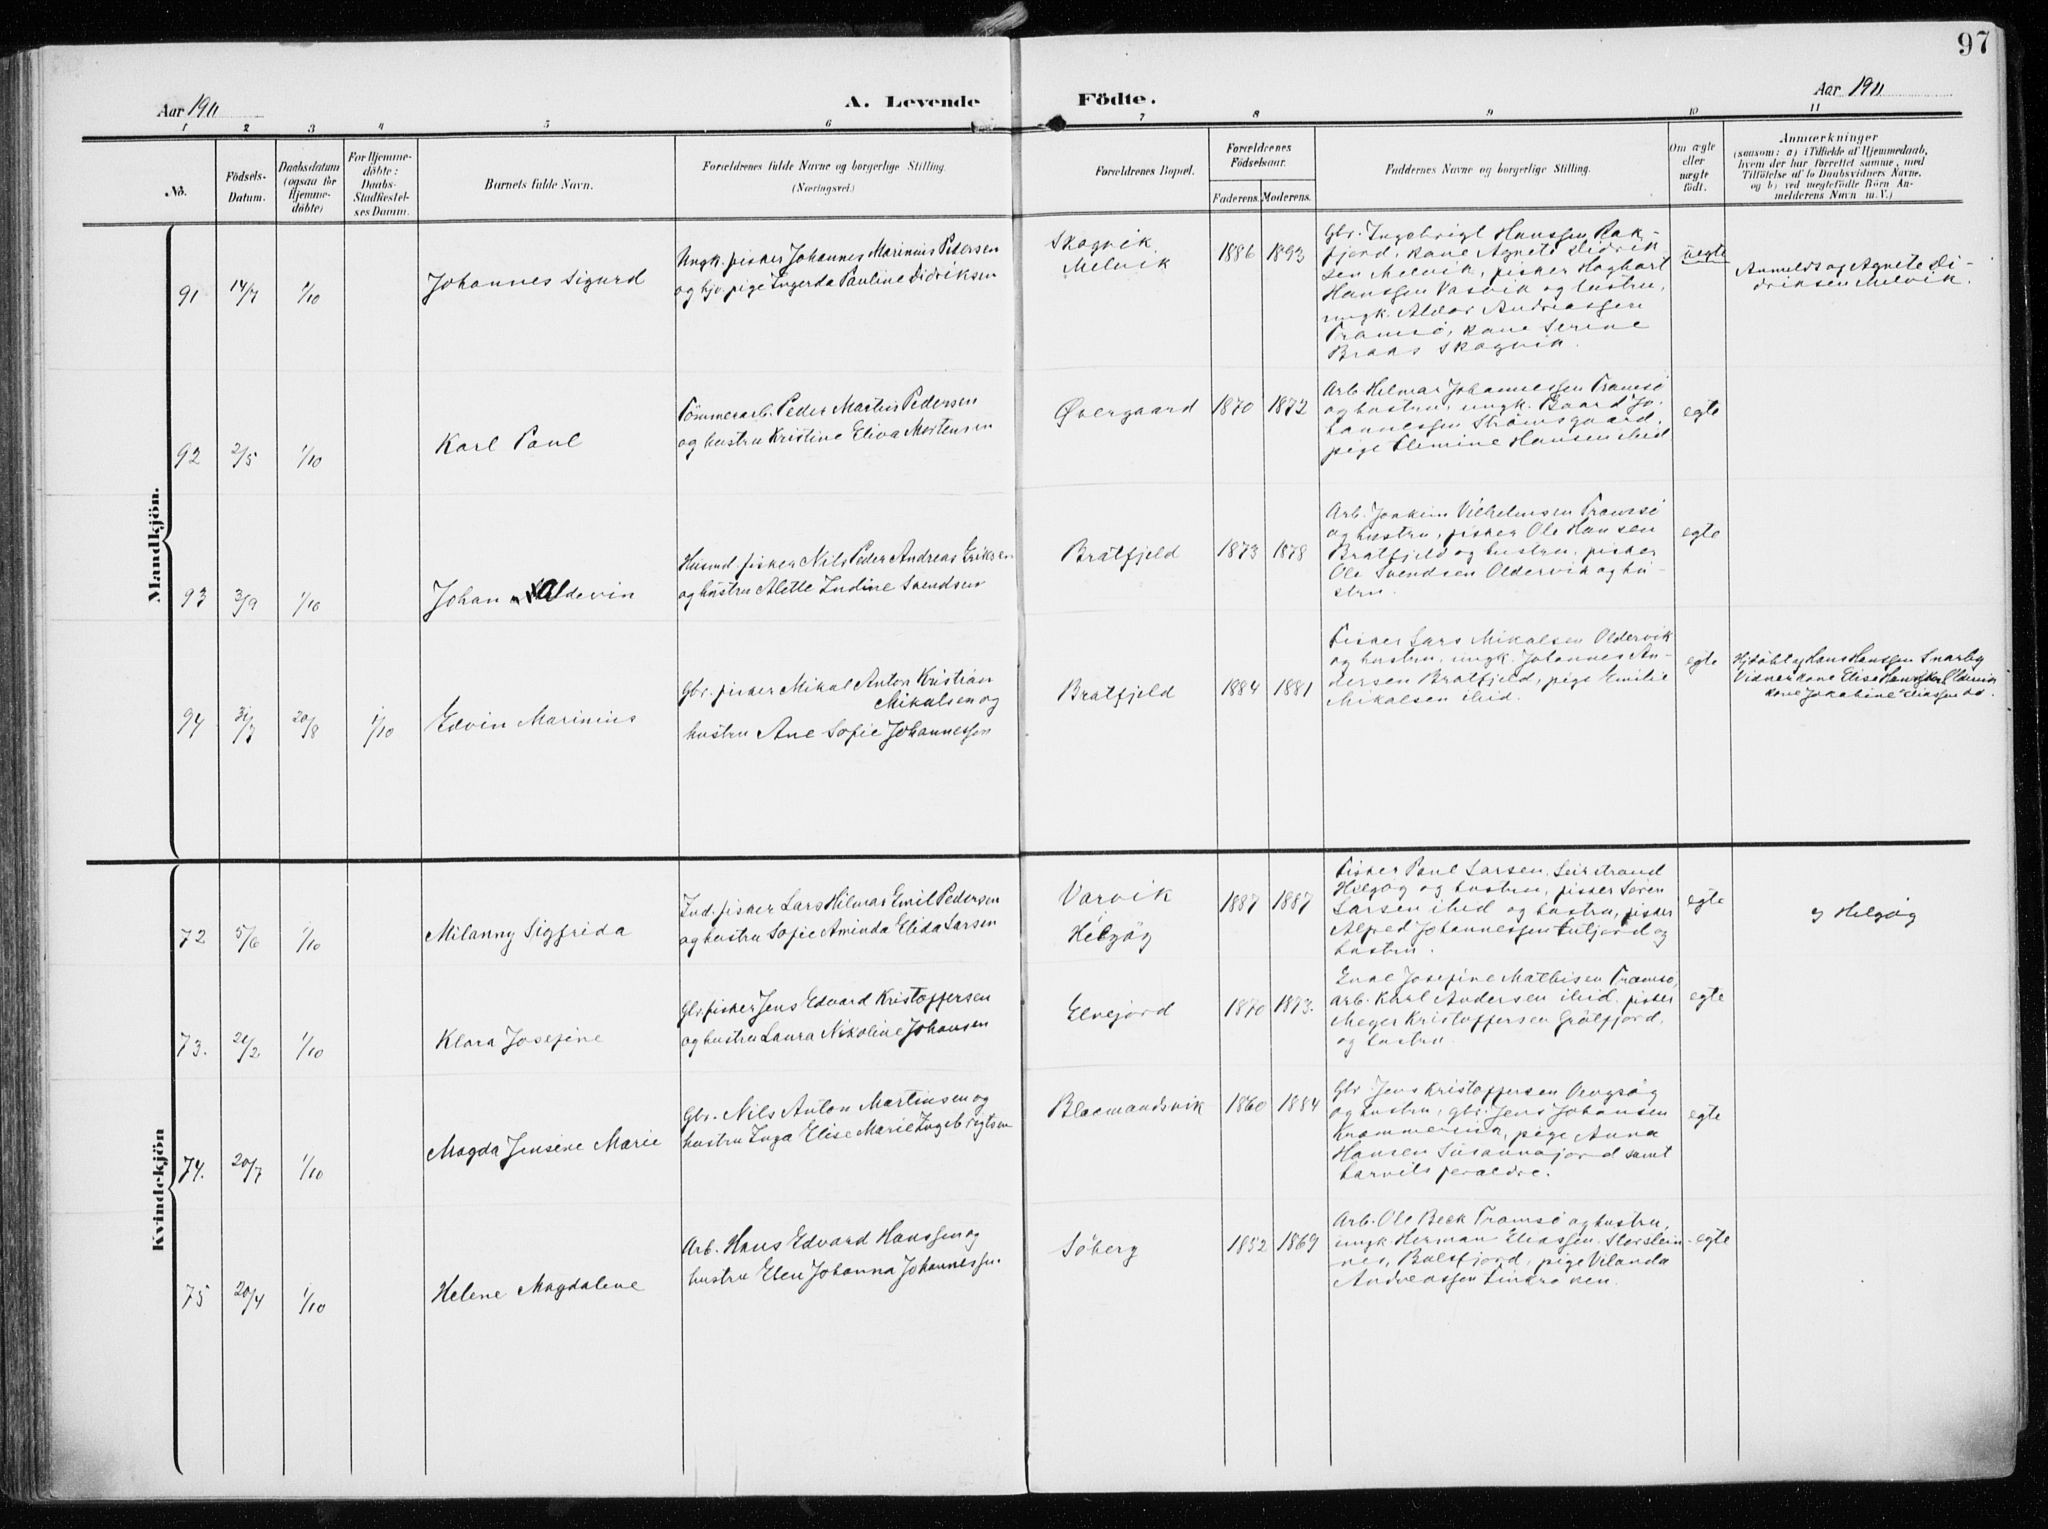 97
Aar 1911
A. Levende Födte.
Aar 1911
1 2 3 4 5 6 7 8 9 10 11
No.
Födsels-
Datum.
Daabsdatum
(ogsaa for
Hjemme-
döbte)
For Hjemme-
döbte:
Daabs-
Stadfæstel-
ses Datum.
Barnets fulde Navn.
Forældrenes fulde Navne og borgerlige Stilling.
(Næringsvei.)
Forældrenes Bopæl.
Forældrenes
Födselsaar.
Faderens. Moderens.
Faddernes Navne og borgerlige Stilling.
Om ægte
eller
uægte
födt.
Anmærkninger
(saasom: a) i Tilfælde af Hjemmedaab,
hvem der har forrettet samme, med
Tilföielse af to Daabsvidners Navne,
og b) ved uægtefödte Börn An-
melderens Navn m. V.)
Mandkjön.
91 14/7 1/10
Johannes Sigurd
Ungk. fisker Johannes Marinius Pedersen
og hjv. pige Ingerda Pauline Didriksen
Skogvik
Melvik
1886 1893
Gbr. Ingebrigt Hanssen Rak-
fjord, kone Agnete Didrik-
sen Melvik, fisker Hagbart
Hanssen Vasvik og hustru,
ungk. Aldor Andreassen
Tromsö, kone Serine
Braas Skogvik.
uegte
Anmeldt og Agnete Di-
driksen Melvik.
92 2/5 1/10
Karl Paul
Tömmerarb. Peder Martin Pedersen
og hustru Kristine Eliva Mortensen
Øvergaard
1870 1872
Arb. Hilmar Johannessen Tromsö
og hustru, ungk. Baard Jo-
hannessen Strömsgaard,
pige Flemine Hansen ibid
egte
93 3/9 1/10
Johan Aldevin
Husmd. fisker Nils Peder Andreas Eriksen
og hustru Alette Indine Svendsen
Bratfjeld
1873 1878
Arb. Joakim Vilhelmsen Tromsö
og hustru, fisker Ole Hansen
Bratfjeld og hustru, fisker
Ole Svendsen Oldervik og hu-
stru.
egte
94 31/7 20/8 1/10
Edvin Marinius
Gbr. fisker Mikal Anton Kristian
Mikalsen og
hustru Ane Sofie Johannessen
Bratfjeld
1884 1881
Fisker Lars Mikalsen Oldervik
og hustru, ungk. Johannes An-
dersen Bratfjeld, pige Emilie
Mikalsen ibid.
egte
Hjdöbt af Hans Hanssen Snarby
Vidner kone Elise Oldervik
kone Jakobine Eliassen
Kvindekjön
72 5/6 1/10
Milanny Sigfrida
Ind. fisker Lars Hilmar Emil Pedersen
og hustru Sofie Aminda Elida Larsen
Varvik
Helgøg
1887 1887
Fisker Paul Larsen, Leirstrand
Helgøg og hustru, fisker Sören
Larsen ibid og hustru, fisker
Alfred Johannessen og
hustru.
egte
Helgøg
73. 21/2 1/10
Klara Josefine
Gbr. fisker Jens Edvard Kristoffersen
og hustru Laura Nikoline Johansen
Elvefjord
1870 1873.
Enke Josefine Mathisen Tromsö,
arb. Karl Andersen ibid. fisker
Meyer Kristoffersen Gråtfjord,
og hustru.
egte
74. 20/7 1/10
Magda Jensine Marie
Gbr. Nils Anton Martinsen og
hustru Inga Elise Marie Ingebrigtsen
Blaamandsvik
1860 1884
Gbr. Jens Kristoffersen Vengsøg
og hustru, gbr. Jens Johansen
Krammervik, pige Anna
Hansen Susannajord samt
barnets foraldre.
egte
75 20/4 1/10
Helene Magdalene
Arb. Hans Edvard Hanssen og
hustru Elen Johanna Johannessen.
Söberg
1852 1869
Arb. Ole Beck Tromsö og hustru,
ungk. Herman Eliassen Storstein-
nes, Balsfjord, pige Vilanda
Andreassen Lindroken.
egte